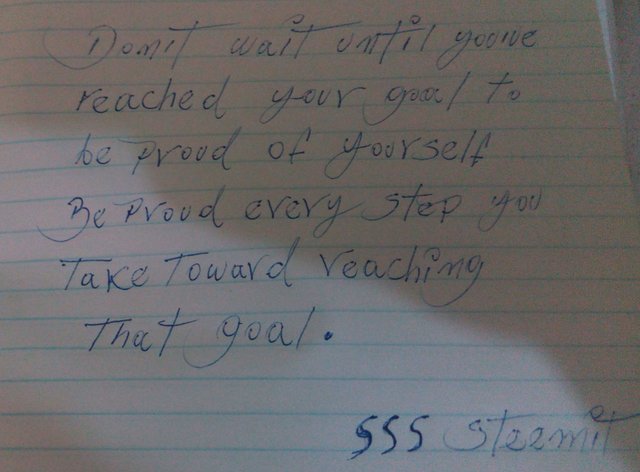 Don't wait until you've
reached your goal to
be proud of yourself
Be Proud every step you
Take Toward reaching
That goal.
SSS Steemit